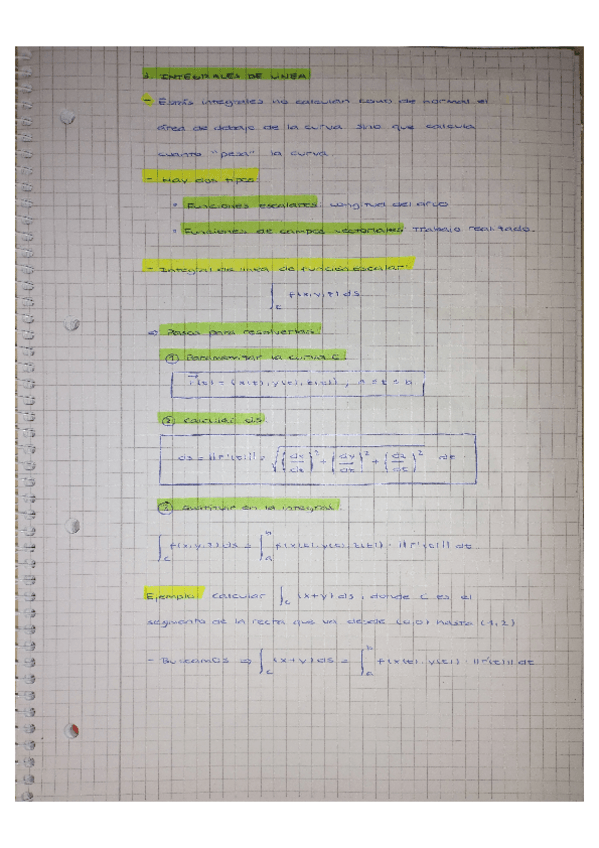 1. INTEGRALES DE LINEA
- Estas integrales no calculan como de normal el
área de debajo de la curva sino que calcula
cuanto "pesa" la curva.
- Hay dos tipos
• Funciones escalares: Longitud del arco
• Funciones de campos vectoriales: Trabajo realizado.
- Integral de linea de función escalar:
∫_C f(x,y,z) ds
⇒ Pasos para resolverlas:
① Parametrizar la curva C
r⃗(t) = (x(t), y(t), z(t)), a ≤ t ≤ b
② Calcular ds
ds = ||r'(t)|| = √((dx/dt)² + (dy/dt)² + (dz/dt)²) dt.
③ Sustituir en la integral
∫_C f(x,y,z) ds = ∫_a^b f(x(t), y(t), z(t)) · ||r'(t)|| dt
Ejemplo: Calcular ∫_C (x+y) ds, donde C es el
segmento de la recta que va desde (0,0) hasta (1,2)
- Buscamos ⇒ ∫_C (x+y) ds = ∫_a^b f(x(t), y(t)) · ||r'(t)|| dt